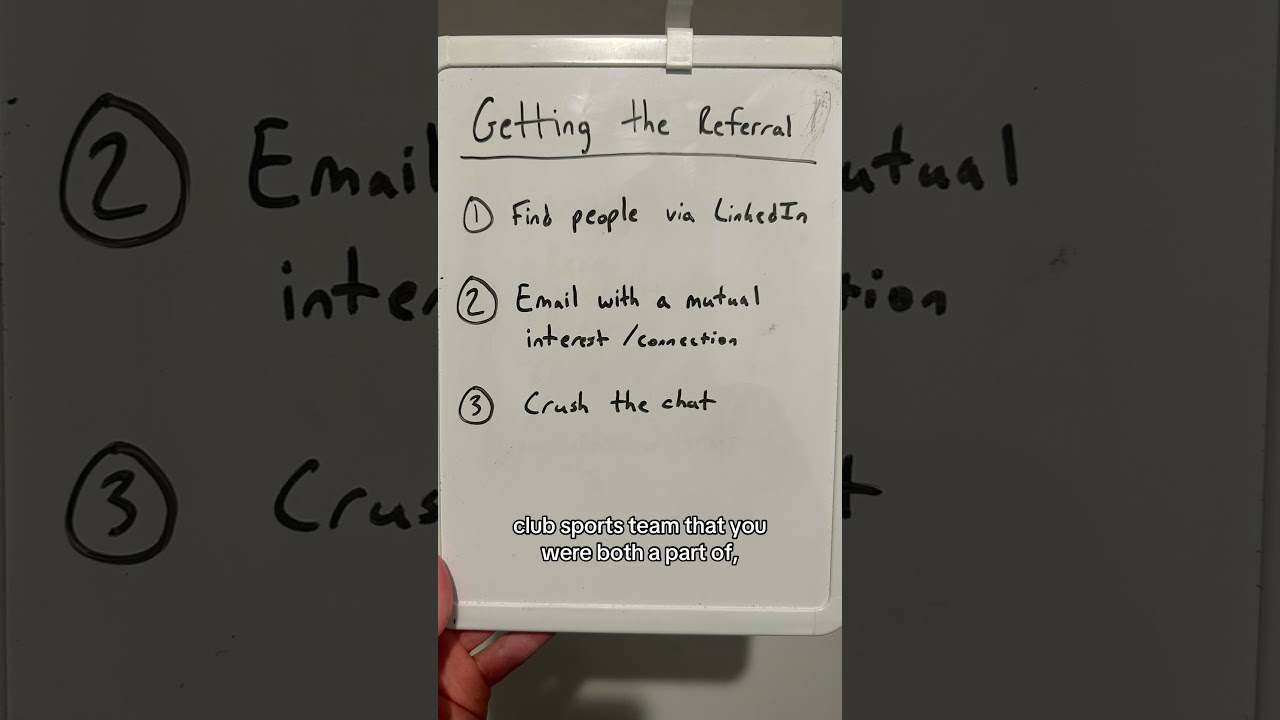 Getting the Referral
① Find people via LinkedIn
② Email with a mutual
interest / connection
③ Crush the chat
club sports team that you
were both a part of,